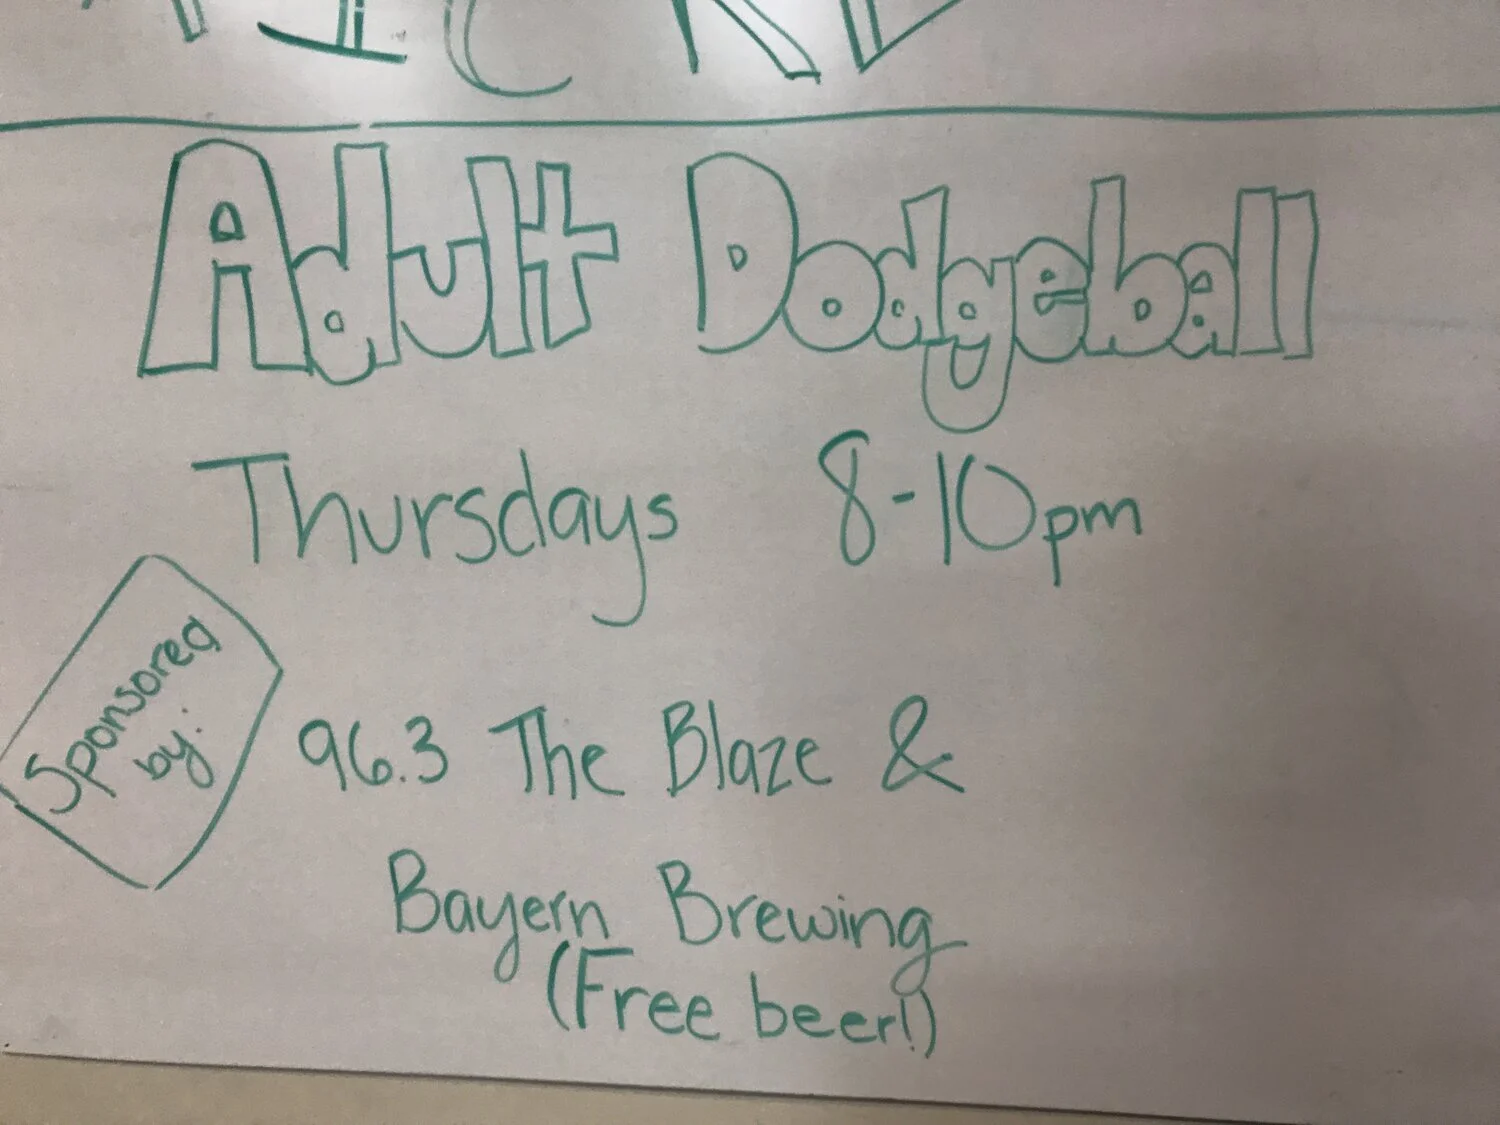 Adult Dodgeball
Thursdays 8-10pm
Sponsored
by:
96.3 The Blaze &
Bayern Brewing
(Free beer!)